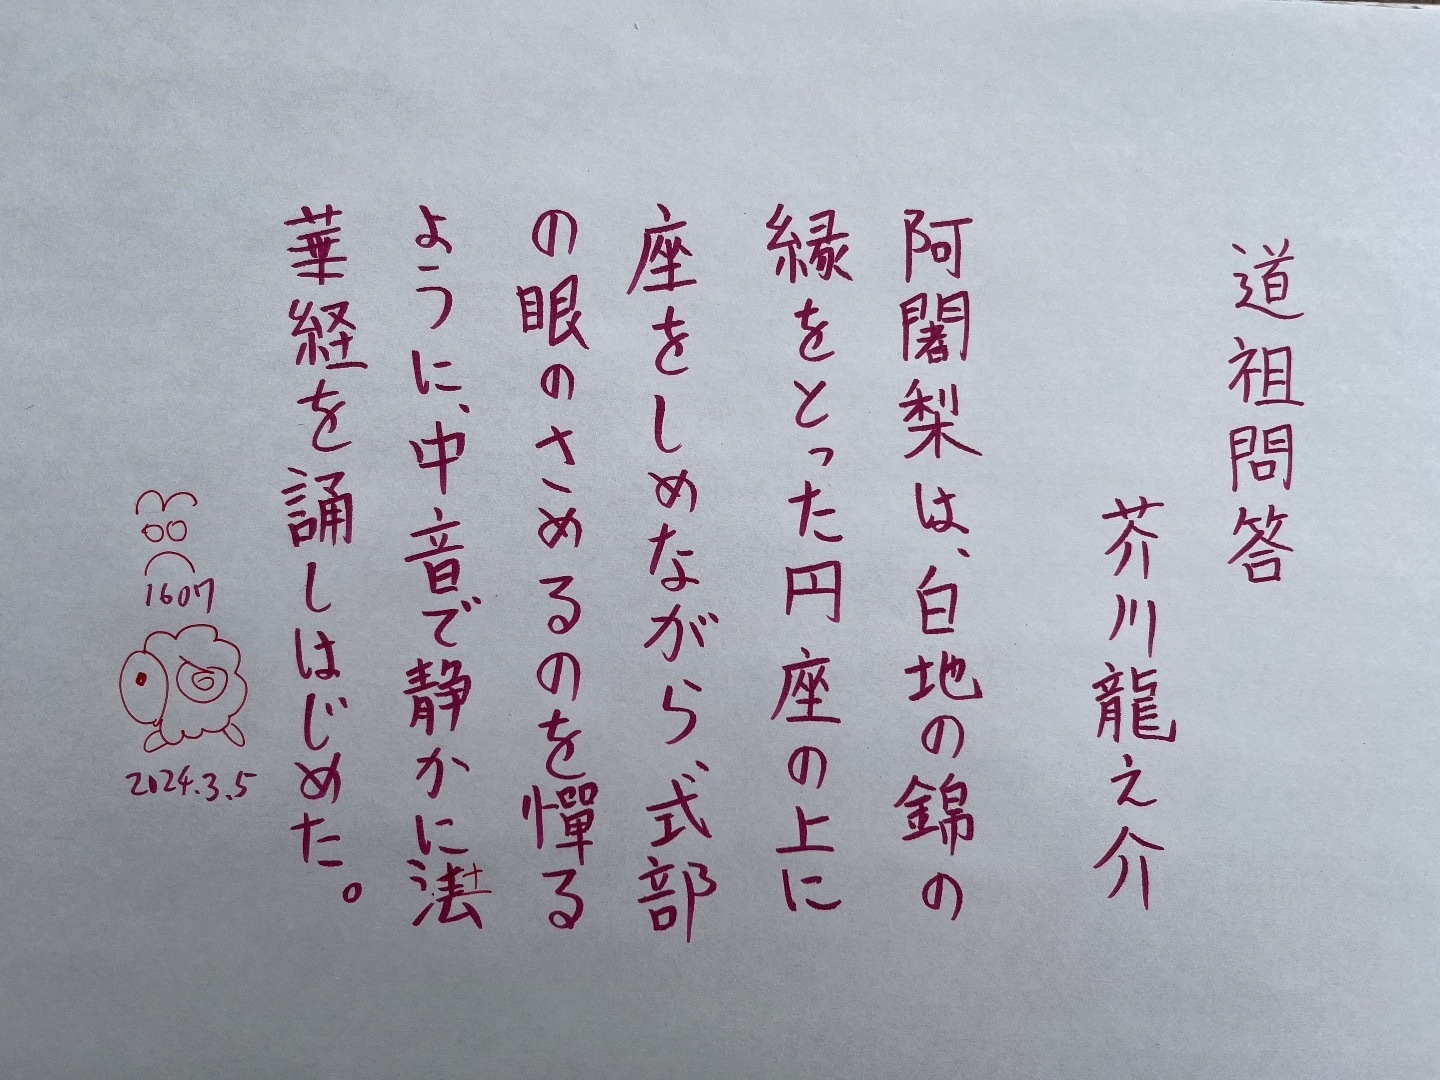 道祖問答
芥川龍之介
阿闍梨は、白地の錦の
縁をとった円座の上に
座をしめながら、式部
の眼のさめるのを憚る
ように、中音で静かに法
華経を誦しはじめた。
1607
2024.3.5